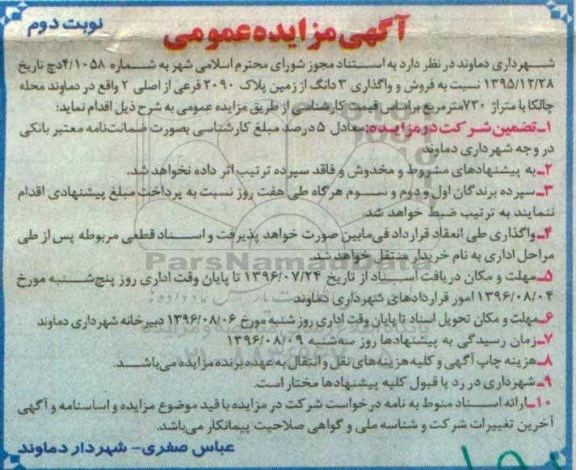 نوبت دوم
آگهی مزایده عمومی
شهرداری دماوند در نظر دارد به استناد مجوز شورای محترم اسلامی شهر به شماره ۴/۱۰۵۸دچ تاریخ
۱۳۹۵/۱۲/۲۸ نسبت به فروش و واگذاری ۳ دانگ از زمین پلاک ۲۰۹۰ فرعی از اصلی ۲ واقع در دماوند محله
چالکا با متراژ ۷۳۰ متر مربع بر اساس قیمت کارشناسی از طریق مزایده عمومی به شرح ذیل اقدام نماید:
۱ـ تضمین شرکت در مزایده: معادل ۵ درصد مبلغ کارشناسی بصورت ضمانت‌نامه معتبر بانکی
در وجه شهرداری دماوند
۲ـ به پیشنهادهای مشروط و مخدوش و فاقد سپرده ترتیب اثر داده نخواهد شد.
۳ـ سپرده برندگان اول و دوم و سوم هرگاه طی هفت روز نسبت به پرداخت مبلغ پیشنهادی اقدام
ننمایند به ترتیب ضبط خواهد شد.
۴ـ واگذاری طی انعقاد قرارداد فی‌مابین صورت خواهد پذیرفت و اسناد قطعی مربوطه پس از طی
مراحل اداری به نام خریدار منتقل خواهد شد.
ParsNamadData
۵ـ مهلت و مکان دریافت اسناد از تاریخ ۱۳۹۶/۰۷/۲۴ تا پایان وقت اداری روز پنج‌شنبه مورخ
۱۳۹۶/۰۸/۰۴ امور قراردادهای شهرداری دماوند
۶ـ مهلت و مکان تحویل اسناد تا پایان وقت اداری روز شنبه مورخ ۱۳۹۶/۰۸/۰۶ دبیرخانه شهرداری دماوند
۷ـ زمان رسیدگی به پیشنهادها روز سه‌شنبه ۱۳۹۶/۰۸/۰۹
۸ـ هزینه چاپ آگهی و کلیه هزینه‌های نقل و انتقال به عهده برنده مزایده می‌باشد.
۹ـ شهرداری در رد یا قبول کلیه پیشنهادها مختار است.
۱۰ـ ارائه اسناد منوط به نامه درخواست شرکت در مزایده با قید موضوع مزایده و اساسنامه و آگهی
آخرین تغییرات شرکت و شناسه ملی و گواهی صلاحیت پیمانکار می‌باشد.
عباس صفری - شهردار دماوند